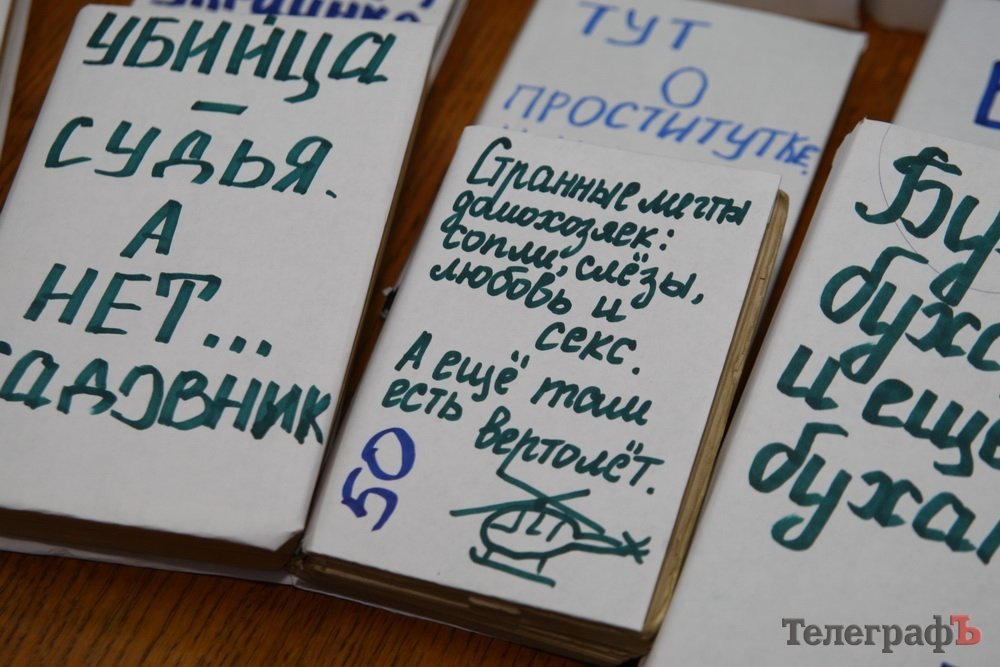 УБИЙЦА
–
СУДЬЯ.
А
НЕТ...
САДОВНИК
ТУТ
О
ПРОСТИТУТКЕ.
Странные мечты
домохозяек:
сопли, слёзы,
любовь и
секс.
А ещё там
есть вертолёт.
50
и ещё
ТелеграфЪ